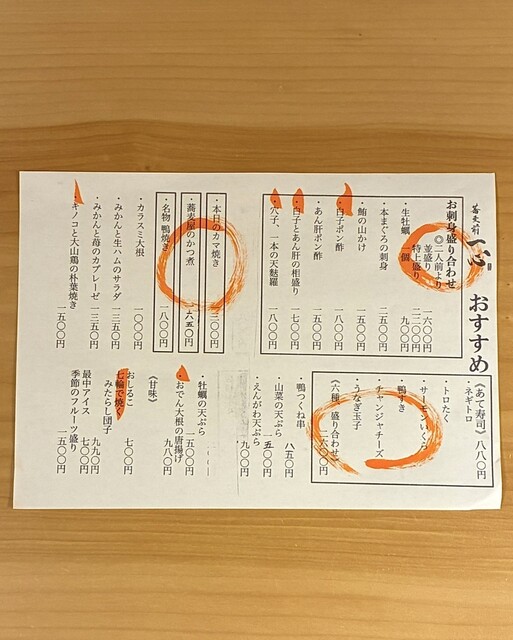 蕎麦前 一心 おすすめ
お刺身盛り合わせ
◎二人前より
並盛り 一六〇〇円
特上盛り 二二〇〇円
・生牡蠣 一個 九〇〇円
・本まぐろの刺身 二五〇〇円
・鮪の山かけ 一五〇〇円
・白子ポン酢 一八〇〇円
・あん肝ポン酢 一五〇〇円
・白子とあん肝の相盛り 一七〇〇円
・穴子、一本の天麩羅 一八〇〇円
・本日のカマ焼き
・蕎麦屋のかつ煮 六五〇円
・名物 鴨焼き 一八〇〇円
・カラスミ大根 一〇〇〇円
・みかんと生ハムのサラダ 一三五〇円
・みかんと苺のカプレーゼ 一三五〇円
・キノコと大山鶏の朴葉焼き 一五〇〇円
《あて寿司》八八〇円
・ネギトロ
・トロたく
・サーモンいくら
・鴨すき
・チャンジャチーズ
・うなぎ玉子
《六種 盛り合わせ》一六〇〇円
・鴨つくね串 八五〇円
・山菜の天ぷら 一五〇〇円
・えんがわ天ぷら 九〇〇円
・牡蠣の天ぷら 一五〇〇円
・おでん大根の唐揚げ 九八〇円
《甘味》
おしるこ 七〇〇円
七輪で焼く
みたらし団子 九九〇円
最中アイス 七〇〇円
季節のフルーツ盛り 一五〇〇円